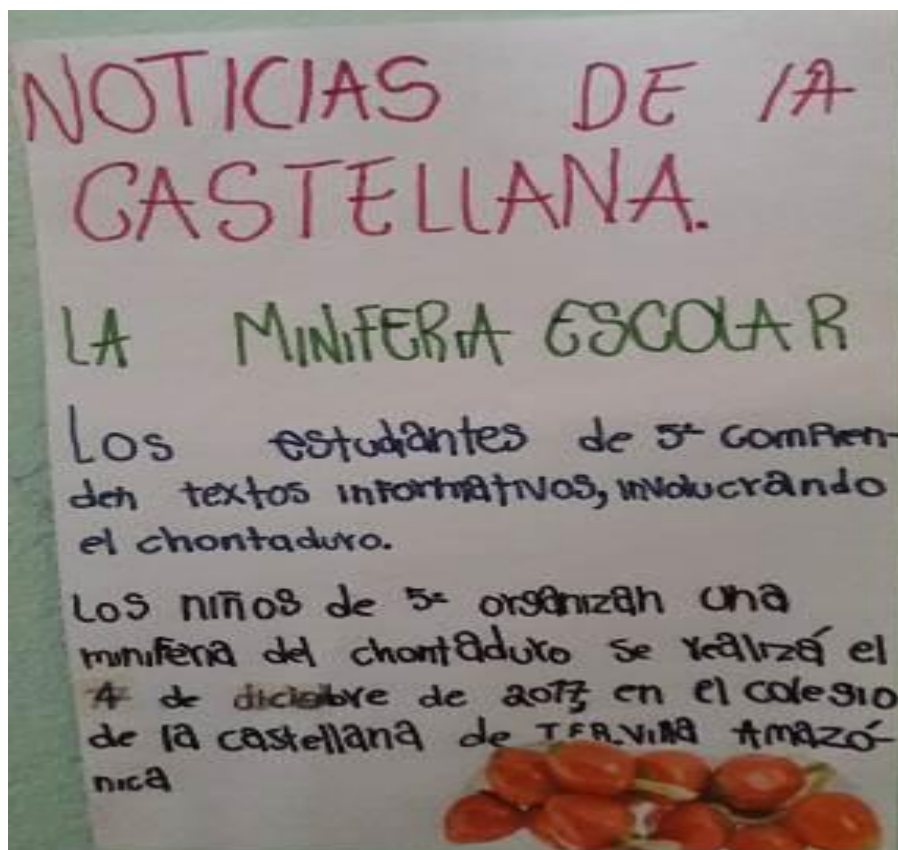 NOTICIAS DE lA
CASTELLANA.
LA MINIFERIA ESCOLAR
Los estudiantes de 5º compren-
den textos informativos, involucrando
el chontaduro.
Los niños de 5º organizan una
miniferia del chontaduro se realizá el
4 de dicimbre de 2017 en el colegio
de la castellana de Villa Amazó-
nica